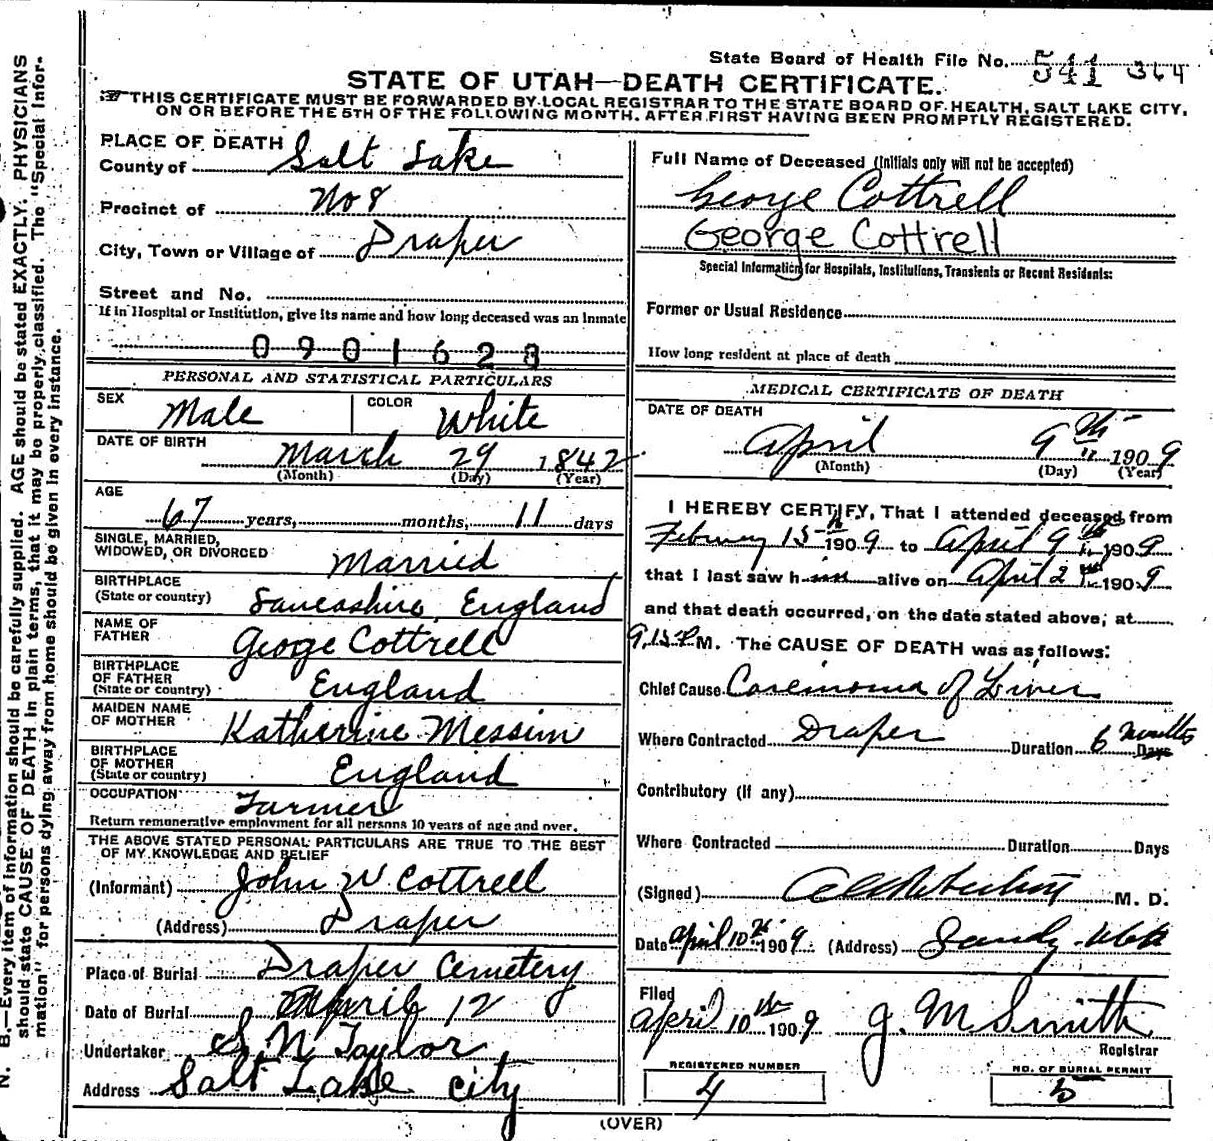 State Board of Health File No. 541 364
STATE OF UTAH—DEATH CERTIFICATE.
THIS CERTIFICATE MUST BE FORWARDED BY LOCAL REGISTRAR TO THE STATE BOARD OF HEALTH, SALT LAKE CITY,
ON OR BEFORE THE 5TH OF THE FOLLOWING MONTH, AFTER FIRST HAVING BEEN PROMPTLY REGISTERED.
N. B.—Every item of information should be carefully supplied. AGE should be stated EXACTLY. PHYSICIANS
should state CAUSE OF DEATH in plain terms, that it may be properly classified. The "Special Infor-
mation" for persons dying away from home should be given in every instance.
PLACE OF DEATH
County of Salt Lake
Precinct of No 8
City, Town or Village of Draper
Street and No.
If in Hospital or Institution, give its name and how long deceased was an Inmate
0901628
PERSONAL AND STATISTICAL PARTICULARS
SEX Male COLOR White
DATE OF BIRTH
March 29 1842
(Month) (Day) (Year)
AGE
67 years, months, 11 days
SINGLE, MARRIED,
WIDOWED, OR DIVORCED Married
BIRTHPLACE
(State or country) Lancashire England
NAME OF
FATHER George Cottrell
BIRTHPLACE
OF FATHER
(State or country) England
MAIDEN NAME
OF MOTHER Katherine Messim
BIRTHPLACE
OF MOTHER
(State or country) England
OCCUPATION Farmer
Return remunerative employment for all persons 10 years of age and over.
THE ABOVE STATED PERSONAL PARTICULARS ARE TRUE TO THE BEST
OF MY KNOWLEDGE AND BELIEF
(Informant) John W Cottrell
(Address) Draper
Place of Burial Draper Cemetery
Date of Burial April 12
Undertaker S. N Taylor
Address Salt Lake City
Full Name of Deceased (Initials only will not be accepted)
George Cottrell
George Cottrell
Special Information for Hospitals, Institutions, Transients or Recent Residents:
Former or Usual Residence
How long resident at place of death
MEDICAL CERTIFICATE OF DEATH
DATE OF DEATH
April 9th 1909
(Month) (Day) (Year)
I HEREBY CERTIFY, That I attended deceased from
February 15th 1909 to April 9th 1909
that I last saw him alive on April 2nd 1909
and that death occurred, on the date stated above, at
9.15 P M. The CAUSE OF DEATH was as follows:
Chief Cause Carcinoma of Liver
Where Contracted Draper Duration 6 months Days
Contributory (if any)
Where Contracted Duration Days
(Signed) M. D.
Date April 10th 1909 (Address) Sandy Utah
Filed
April 10th 1909 J. M Smith
Registrar
REGISTERED NUMBER
4
NO. OF BURIAL PERMIT
5
(OVER)